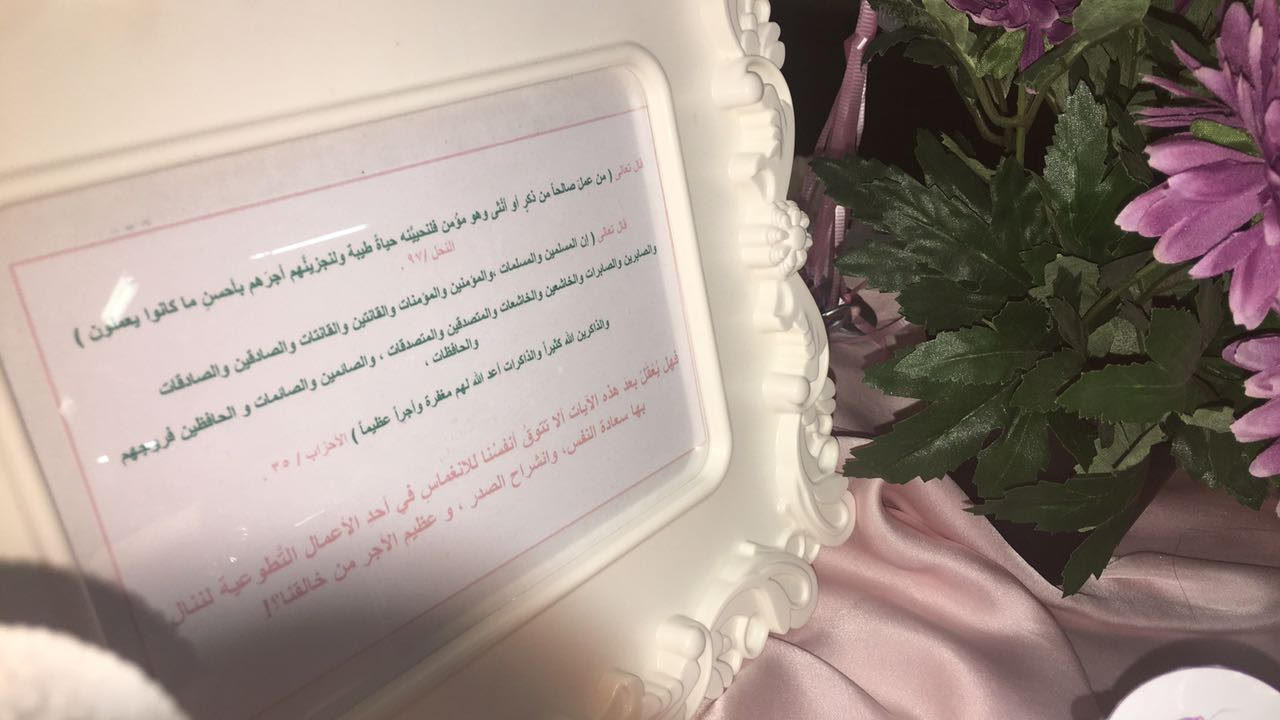 قال تعالى ( من عملَ صالحاً من ذكرٍ أو أنثى وهو مؤمن فلنحيينّه حياةً طيبة ولنجزينَّهم أجرَهم بأحسنِ ما كانوا يعملون )
النحل /٩٧ .
قال تعالى ( إن المسلمين والمسلمات ،والمؤمنين والمؤمنات والقانتين والقانتات والصادقين والصادقات
والصابرين والصابرات والخاشعين والخاشعات والمتصدقين والمتصدقات ، والصائمين والصائمات و الحافظين فروجهم
والحافظات ،
والذاكرين الله كثيراً والذاكرات أعد الله لهم مغفرة وأجراً عظيماً ) الأحزاب / ٣٥ .
فهل يُعقلُ بعد هذه الآيات ألا تتوقَ أنفسُنا للانغماسِ في أحد الأعمال التَّطوعية لننال
بها سعادة النفس، وانشراح الصدر ، و عظيم الأجر من خالقنا؟!